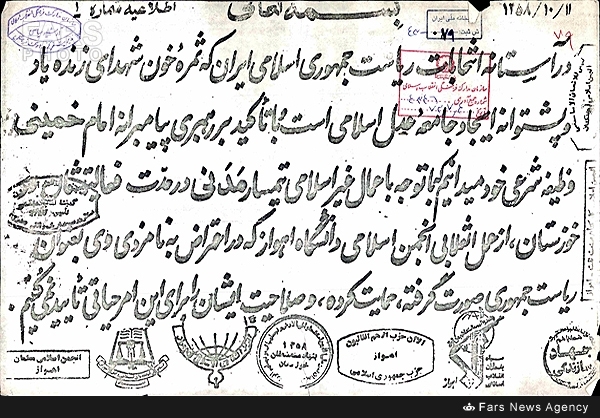 بسمه تعالی
اطلاعیه شماره ۱
۱۳۵۸/۱۰/۱۱
۷۹
در آستانه انتخابات ریاست جمهوری اسلامی ایران که ثمره خون شهدای زنده یاد
و پشتوانه ایجاد جامعه عدل اسلامی است با تأکید بر رهبری پیامبرانه امام خمینی
وظیفه شرعی خود میدانیم که با توجه با عمال غیر اسلامی تیمسار مدنی در مدت فعالیتشان در
خوزستان، از عمل انقلابی انجمن اسلامی دانشگاه اهواز که در اعتراض به نامزدی وی بعنوان
ریاست جمهوری صورت گرفته، حمایت کرده، و صلاحیت ایشان را برای این امر حیاتی تأیید نمی‌کنیم.
انجمن اسلامی معلمان
اهواز
۱۳۵۸
حزب جمهوری اسلامی
اهواز
سپاه
پاسداران
انقلاب
اسلامی
اهواز
جهاد
سازندگی
Fars News Agency